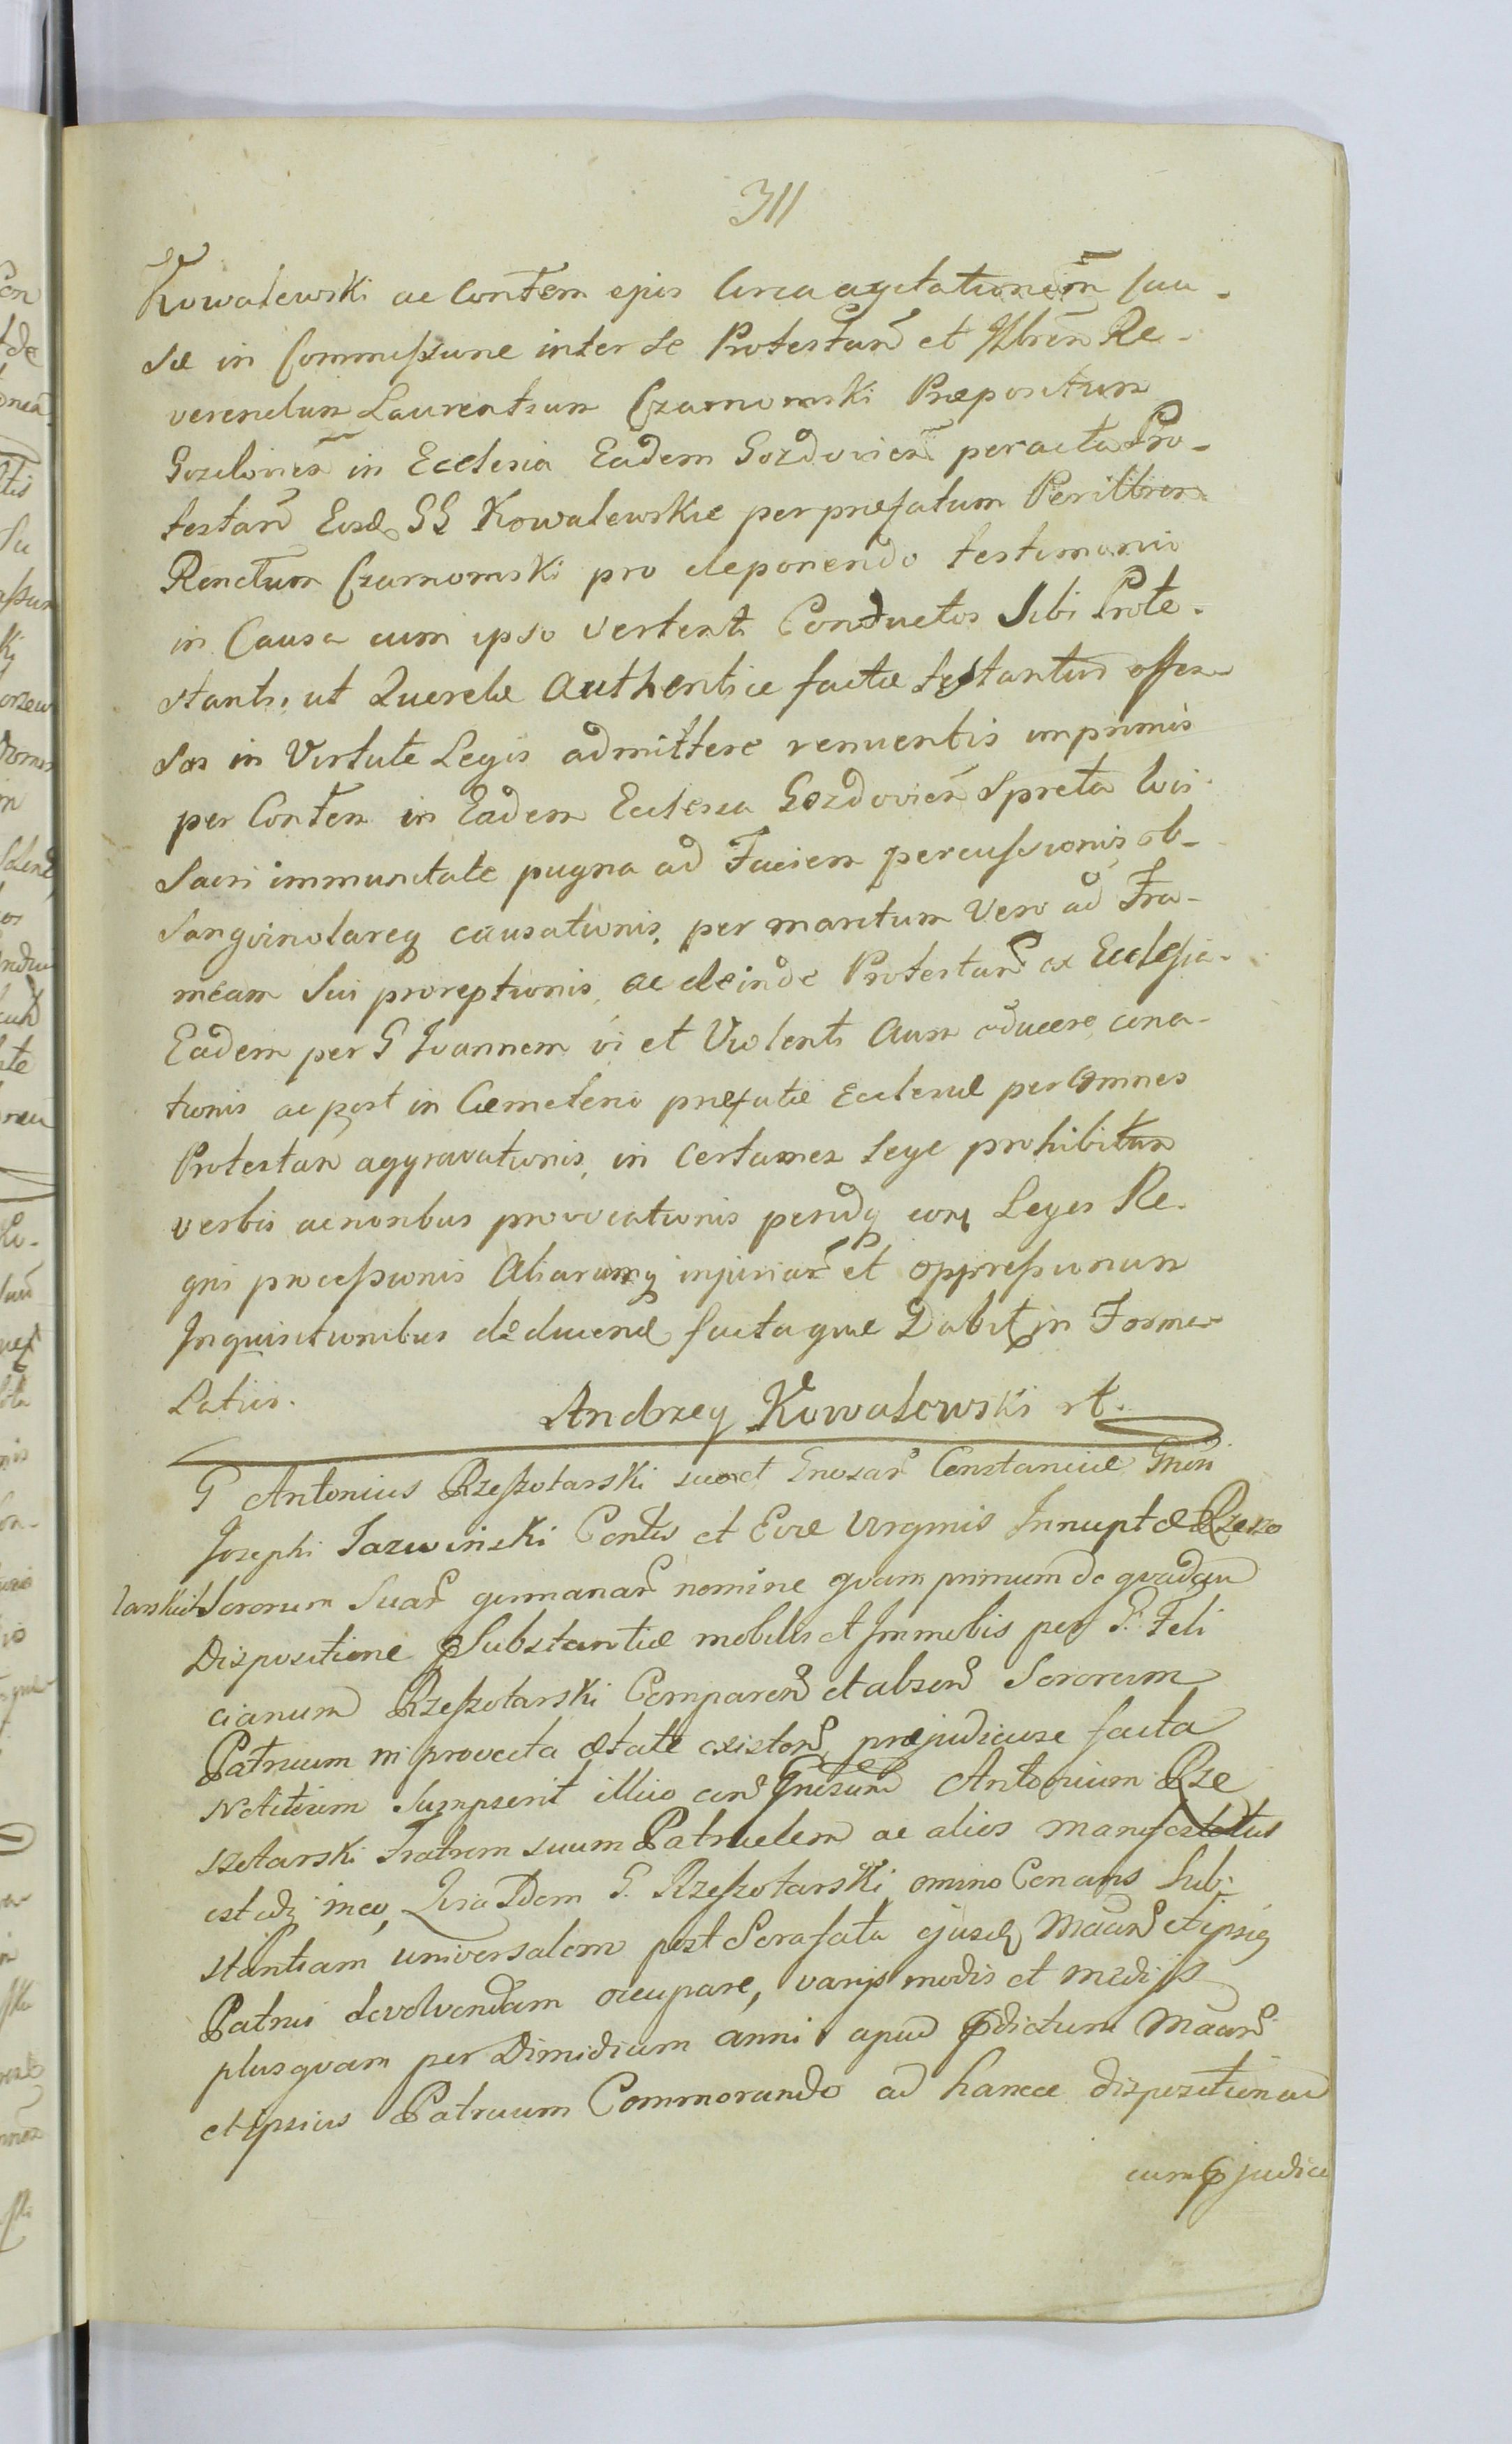 311
Kowalewski ac Contem ejus circa agitationem cau-
sæ in Commissione inter se Protestan et Illrem Re-
verendum Laurentium Czarnomski Præpositum
Gozdovien in Ecclesia Eadem Gozdovien peracta Pro-
testan Eosd GG Kowalewskie per præfatum Perillrem
Rendum Czarnomski pro deponendo testimonio
in Causa cum ipso vertenti Conductos Sibi Prote-
stanti, ut Querelæ Authentice factæ testantur offen-
sos in Virtute Legis admittere renuentis imprimis
per Contem in Eadem Ecclesia Gozdovien Spreta loci
Sacri immunitate pugna ad Faciem percussionis ob-
sangvinolareq causationis, per maritum Vero ad Fra-
meam Sui proreptionis, ac deinde Protestan ex Ecclesia
Eadem per G Joannem vi et Violenti Ausu educere cona-
tionis ac post in Cæmeterio præfatæ Ecclesiæ per Omnes
Protestan aggravationis, in Certamen lege prohibitum
verbis acrioribus provocationis perindq contra Leges Re-
gni processionis Aliarumq injuriar et oppressionum
Inquisitionibus deducend factaque Dabit in Forma
Latius.
Andrzey Kowalewski st.
G Antonius Rzeszotarski suo et Gnosar Constantiæ Gnosi
Josephi Jazwinski Contis et Evæ Virginis Innuptæ Rzeszo
tarskich Sororum Suar germanar nomine qvam primum de qvadam
Dispositione Substantiæ mobilis et Immobis per G. Feli
cianum Rzeszotarski Comparen et absen Sororum
Patruum in provecta ætate existen, præjudiciose facta
Notitiam Sumpserit illico con Gnosum Antonium Rze
szotarski Fratrem suum Patruelem ac alios manifestatus
est idq ineo, Quia Idem G. Rzeszotarski omino Conans Sub-
stantiam universalem post Serafata ejusd Maan et ipsiq
Patrui devolvendam occupare, varijs modis et medijs
plusqvam per Dimidium anni apud pdictum Maan
et ipsius Patruum Commorando ad hancce dispositionem
cum pjudici